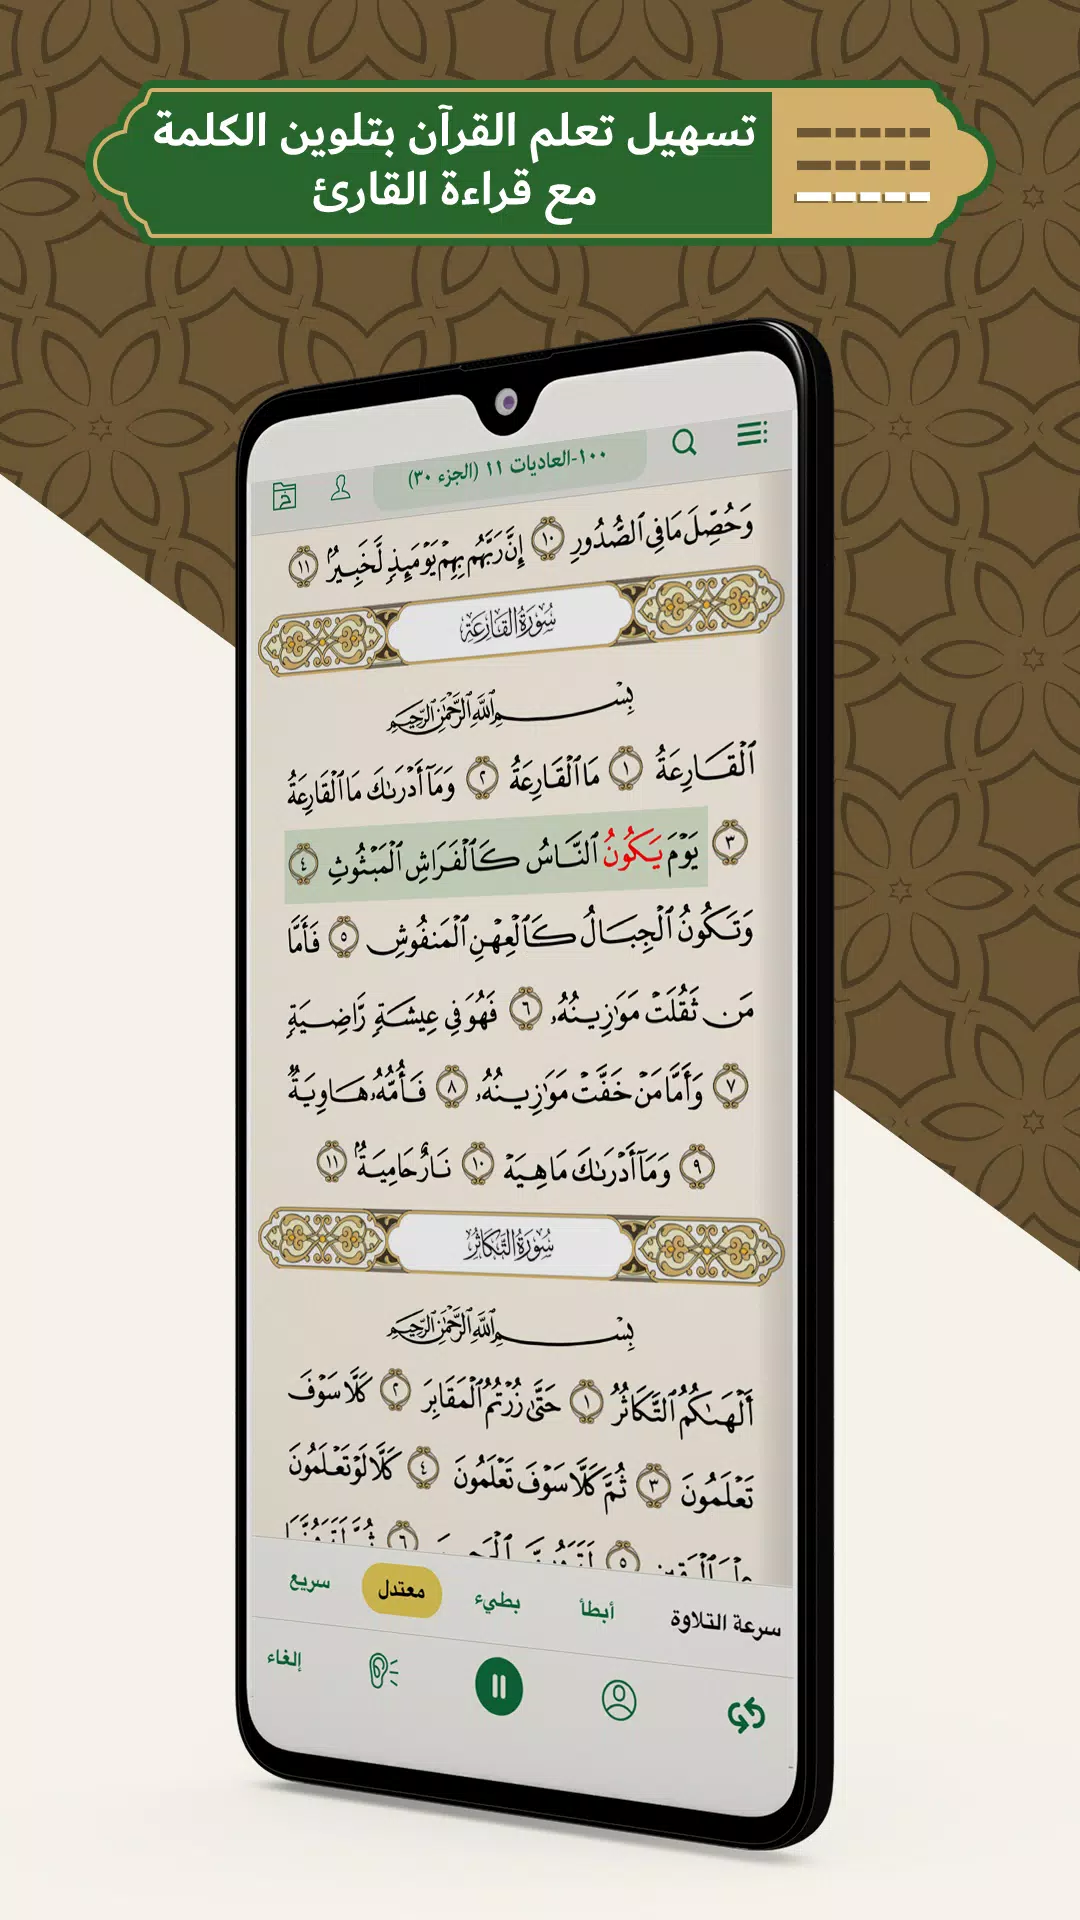 تسهيل تعلم القرآن بتلوين الكلمة
مع قراءة القارئ
١٠٠-العاديات ١١ (الجزء ٣٠)
وَحُصِّلَ مَا فِى ٱلصُّدُورِ ١٠ إِنَّ رَبَّهُم بِهِمْ يَوْمَئِذٍ لَّخَبِيرٌۢ ١١
سُورَةُ القَارِعَةِ
بِسْمِ ٱللَّهِ ٱلرَّحْمَٰنِ ٱلرَّحِيمِ
ٱلْقَارِعَةُ ١ مَا ٱلْقَارِعَةُ ٢ وَمَآ أَدْرَىٰكَ مَا ٱلْقَارِعَةُ
٣ يَوْمَ يَكُونُ ٱلنَّاسُ كَٱلْفَرَاشِ ٱلْمَبْثُوثِ ٤
وَتَكُونُ ٱلْجِبَالُ كَٱلْعِهْنِ ٱلْمَنفُوشِ ٥ فَأَمَّا
مَن ثَقُلَتْ مَوَٰزِينُهُۥ ٦ فَهُوَ فِى عِيشَةٍ رَّاضِيَةٍ
٧ وَأَمَّا مَنْ خَفَّتْ مَوَٰزِينُهُۥ ٨ فَأُمُّهُۥ هَاوِيَةٌ
٩ وَمَآ أَدْرَىٰكَ مَا هِيَهْ ١٠ نَارٌ حَامِيَةٌۢ ١١
سُورَةُ التَّكَاثُرِ
بِسْمِ ٱللَّهِ ٱلرَّحْمَٰنِ ٱلرَّحِيمِ
أَلْهَىٰكُمُ ٱلتَّكَاثُرُ ١ حَتَّىٰ زُرْتُمُ ٱلْمَقَابِرَ ٢ كَلَّا سَوْفَ
تَعْلَمُونَ ٣ ثُمَّ كَلَّا سَوْفَ تَعْلَمُونَ ٤ كَلَّا لَوْ تَعْلَمُونَ
٥ ٦
سرعة التلاوة أبطأ بطيء معتدل سريع
إلغاء